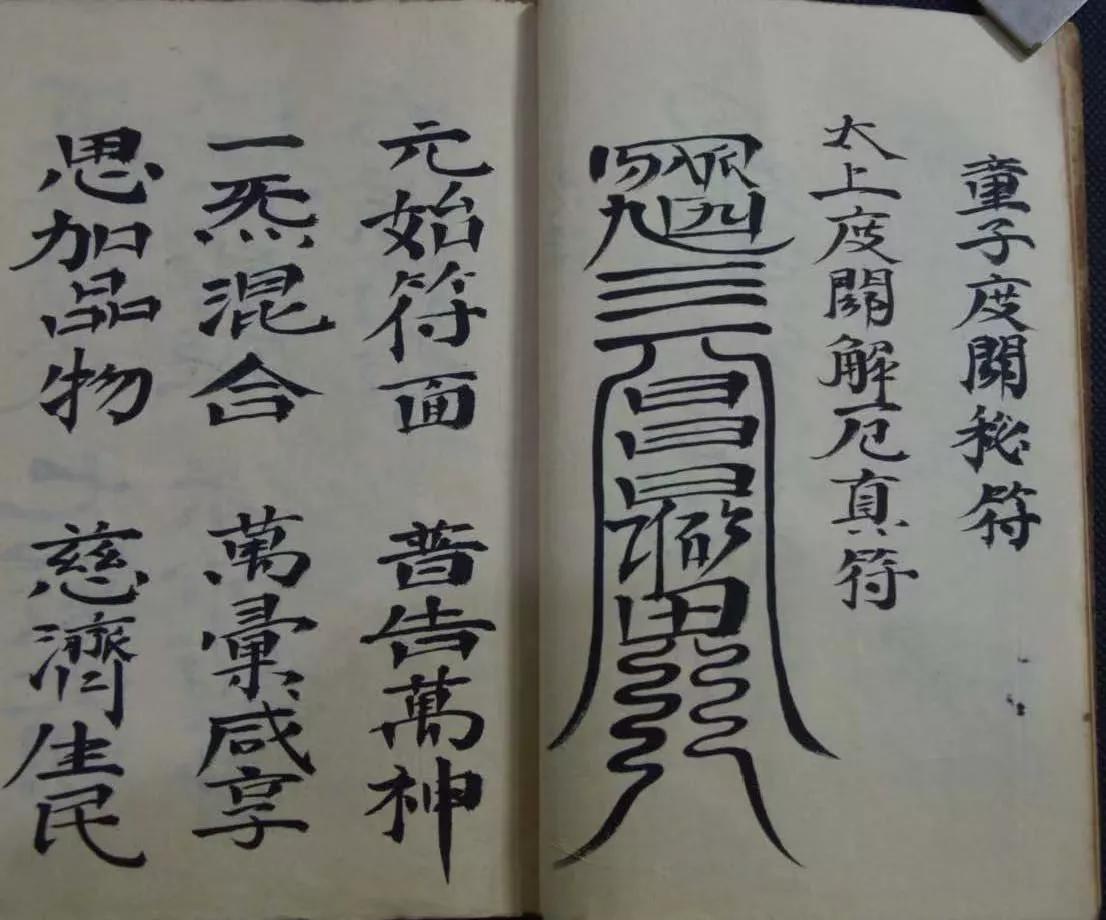 童子度關秘符
太上度關解厄真符
元始符面 普告萬神
一炁混合 萬彙咸享
思加品物 慈濟生民